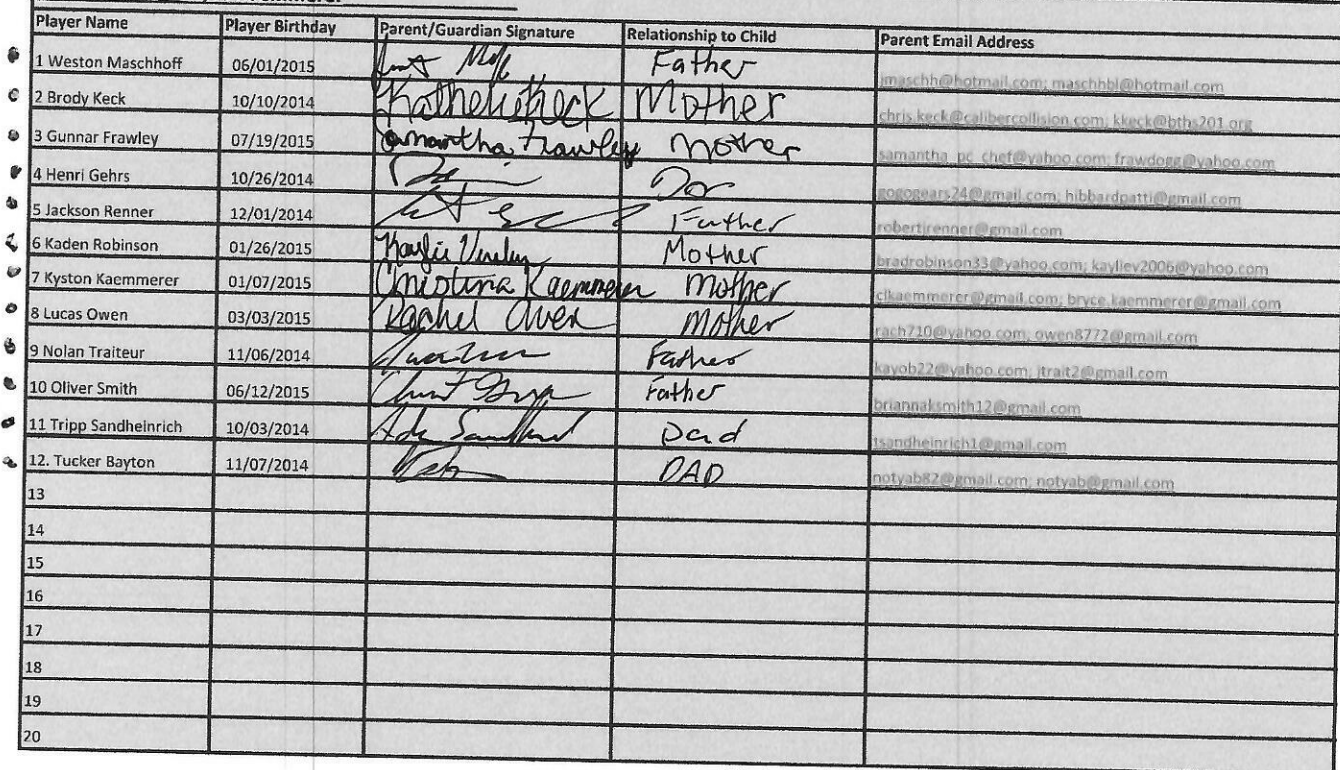 Player Name Player Birthday Parent/Guardian Signature Relationship to Child Parent Email Address
1 Weston Maschhoff 06/01/2015 Father jmaschh@hotmail.com; maschhbl@hotmail.com
2 Brody Keck 10/10/2014 Keck Mother chris.keck@calibercollision.com; kkeck@bths201.org
3 Gunnar Frawley 07/19/2015 Samantha Frawley mother samantha_pc_chef@yahoo.com; frawdogg@yahoo.com
4 Henri Gehrs 10/26/2014 gogogears24@gmail.com; hibbardpatti@gmail.com
5 Jackson Renner 12/01/2014 Father robertjrenner@gmail.com
6 Kaden Robinson 01/26/2015 Kaylie Mother bradrobinson33@yahoo.com; kayliev2006@yahoo.com
7 Kyston Kaemmerer 01/07/2015 Christina Kaemmerer mother clkaemmerer@gmail.com; bryce.kaemmerer@gmail.com
8 Lucas Owen 03/03/2015 Rachel Owen mother rach710@yahoo.com; owen8772@gmail.com
9 Nolan Traiteur 11/06/2014 Father kayob22@yahoo.com; jtrait2@gmail.com
10 Oliver Smith 06/12/2015 Father briannaksmith12@gmail.com
11 Tripp Sandheinrich 10/03/2014 Dad tsandheinrich1@gmail.com
12. Tucker Bayton 11/07/2014 DAD notyab82@gmail.com; notyab@gmail.com
13
14
15
16
17
18
19
20